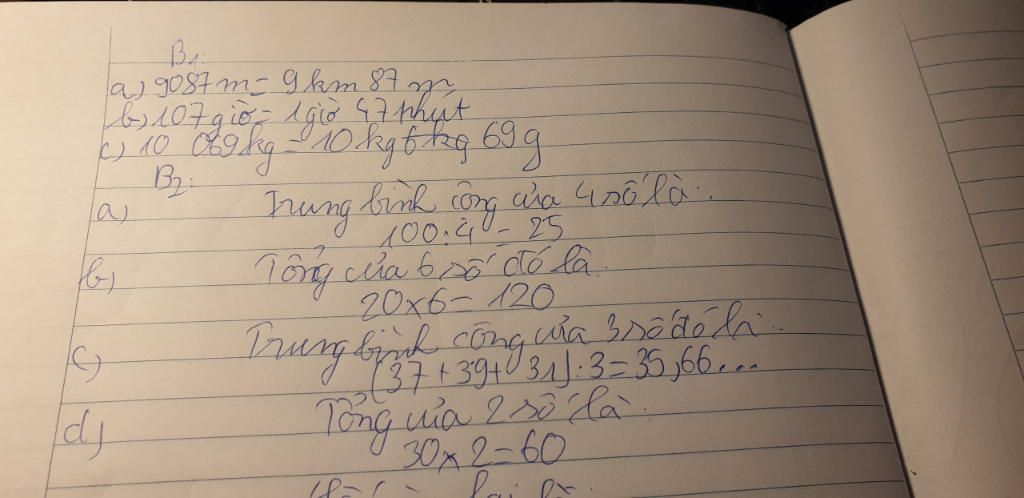 B1:
a) 9087m = 9km 87m
b) 107 giờ = 1 giờ 47 phút
c) 10 069kg = 10kg 6kg 69g
B2:
a) Trung bình cộng của 4 số là:
100 : 4 = 25
b) Tổng của 6 số đó là:
20 x 6 = 120
c) Trung bình cộng của 3 số đó là:
(37 + 39 + 31) : 3 = 35,66...
d) Tổng của 2 số là:
30 x 2 = 60